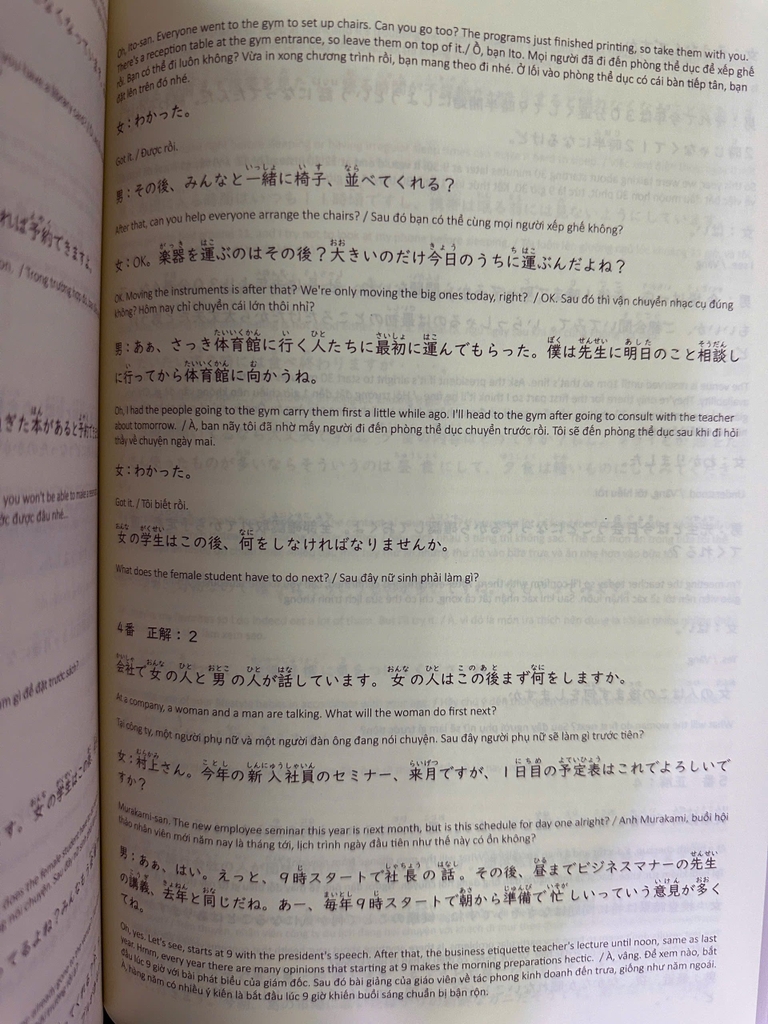 Oh, Ito-san. Everyone went to the gym to set up chairs. Can you go too? The programs just finished printing, so take them with you.
There's a reception table at the gym entrance, so leave them on top of it./ Ồ, bạn Ito. Mọi người đã đi đến phòng thể dục để xếp ghế
rồi. Bạn có thể đi luôn không? Vừa in xong chương trình rồi, bạn mang theo đi nhé. Ở lối vào phòng thể dục có cái bàn tiếp tân, bạn
đặt lên trên đó nhé.
女：わかった。
Got it. / Được rồi.
男：その後、みんなと一緒に椅子、並べてくれる？
After that, can you help everyone arrange the chairs? / Sau đó bạn có thể cùng mọi người xếp ghế không?
女：OK。楽器を運ぶのはその後？大きいのだけ今日のうちに運ぶんだよね？
OK. Moving the instruments is after that? We're only moving the big ones today, right? / OK. Sau đó thì vận chuyển nhạc cụ đúng
không? Hôm nay chỉ chuyển cái lớn thôi nhỉ?
男：あぁ、さっき体育館に行く人たちに最初に運んでもらった。僕は先生に明日のこと相談し
に行ってから体育館に向かうね。
Oh, I had the people going to the gym carry them first a little while ago. I'll head to the gym after going to consult with the teacher
about tomorrow. / À, ban nãy tôi đã nhờ mấy người đi đến phòng thể dục chuyển trước rồi. Tôi sẽ đến phòng thể dục sau khi đi hỏi
thầy về chuyện ngày mai.
女：わかった。
Got it. / Tôi biết rồi.
女の学生はこの後、何をしなければなりませんか。
What does the female student have to do next? / Sau đây nữ sinh phải làm gì?
4番　正解：2
会社で女の人と男の人が話しています。女の人はこの後まず何をしますか。
At a company, a woman and a man are talking. What will the woman do first next?
Tại công ty, một người phụ nữ và một người đàn ông đang nói chuyện. Sau đây người phụ nữ sẽ làm gì trước tiên?
女：村上さん。今年の新入社員のセミナー、来月ですが、1日目の予定表はこれでよろしいで
すか？
Murakami-san. The new employee seminar this year is next month, but is this schedule for day one alright? / Anh Murakami, buổi hội
thảo nhân viên mới năm nay là tháng tới, lịch trình ngày đầu tiên như thế này có ổn không?
男：あぁ、はい。えっと、9時スタートで社長の話。その後、昼までビジネスマナーの先生
の講義、去年と同じだね。あー、毎年9時スタートで朝から準備で忙しいっていう意見が多く
てね。
Oh, yes. Let's see, starts at 9 with the president's speech. After that, the business etiquette teacher's lecture until noon, same as last
year. Hmm, every year there are many opinions that starting at 9 makes the morning preparations hectic. / À, vâng. Để xem nào, bắt
đầu lúc 9 giờ với bài phát biểu của giám đốc. Sau đó bài giảng của giáo viên về tác phong kinh doanh đến trưa, giống như năm ngoái.
À, hằng năm có nhiều ý kiến là bắt đầu lúc 9 giờ khiến buổi sáng chuẩn bị bận rộn.